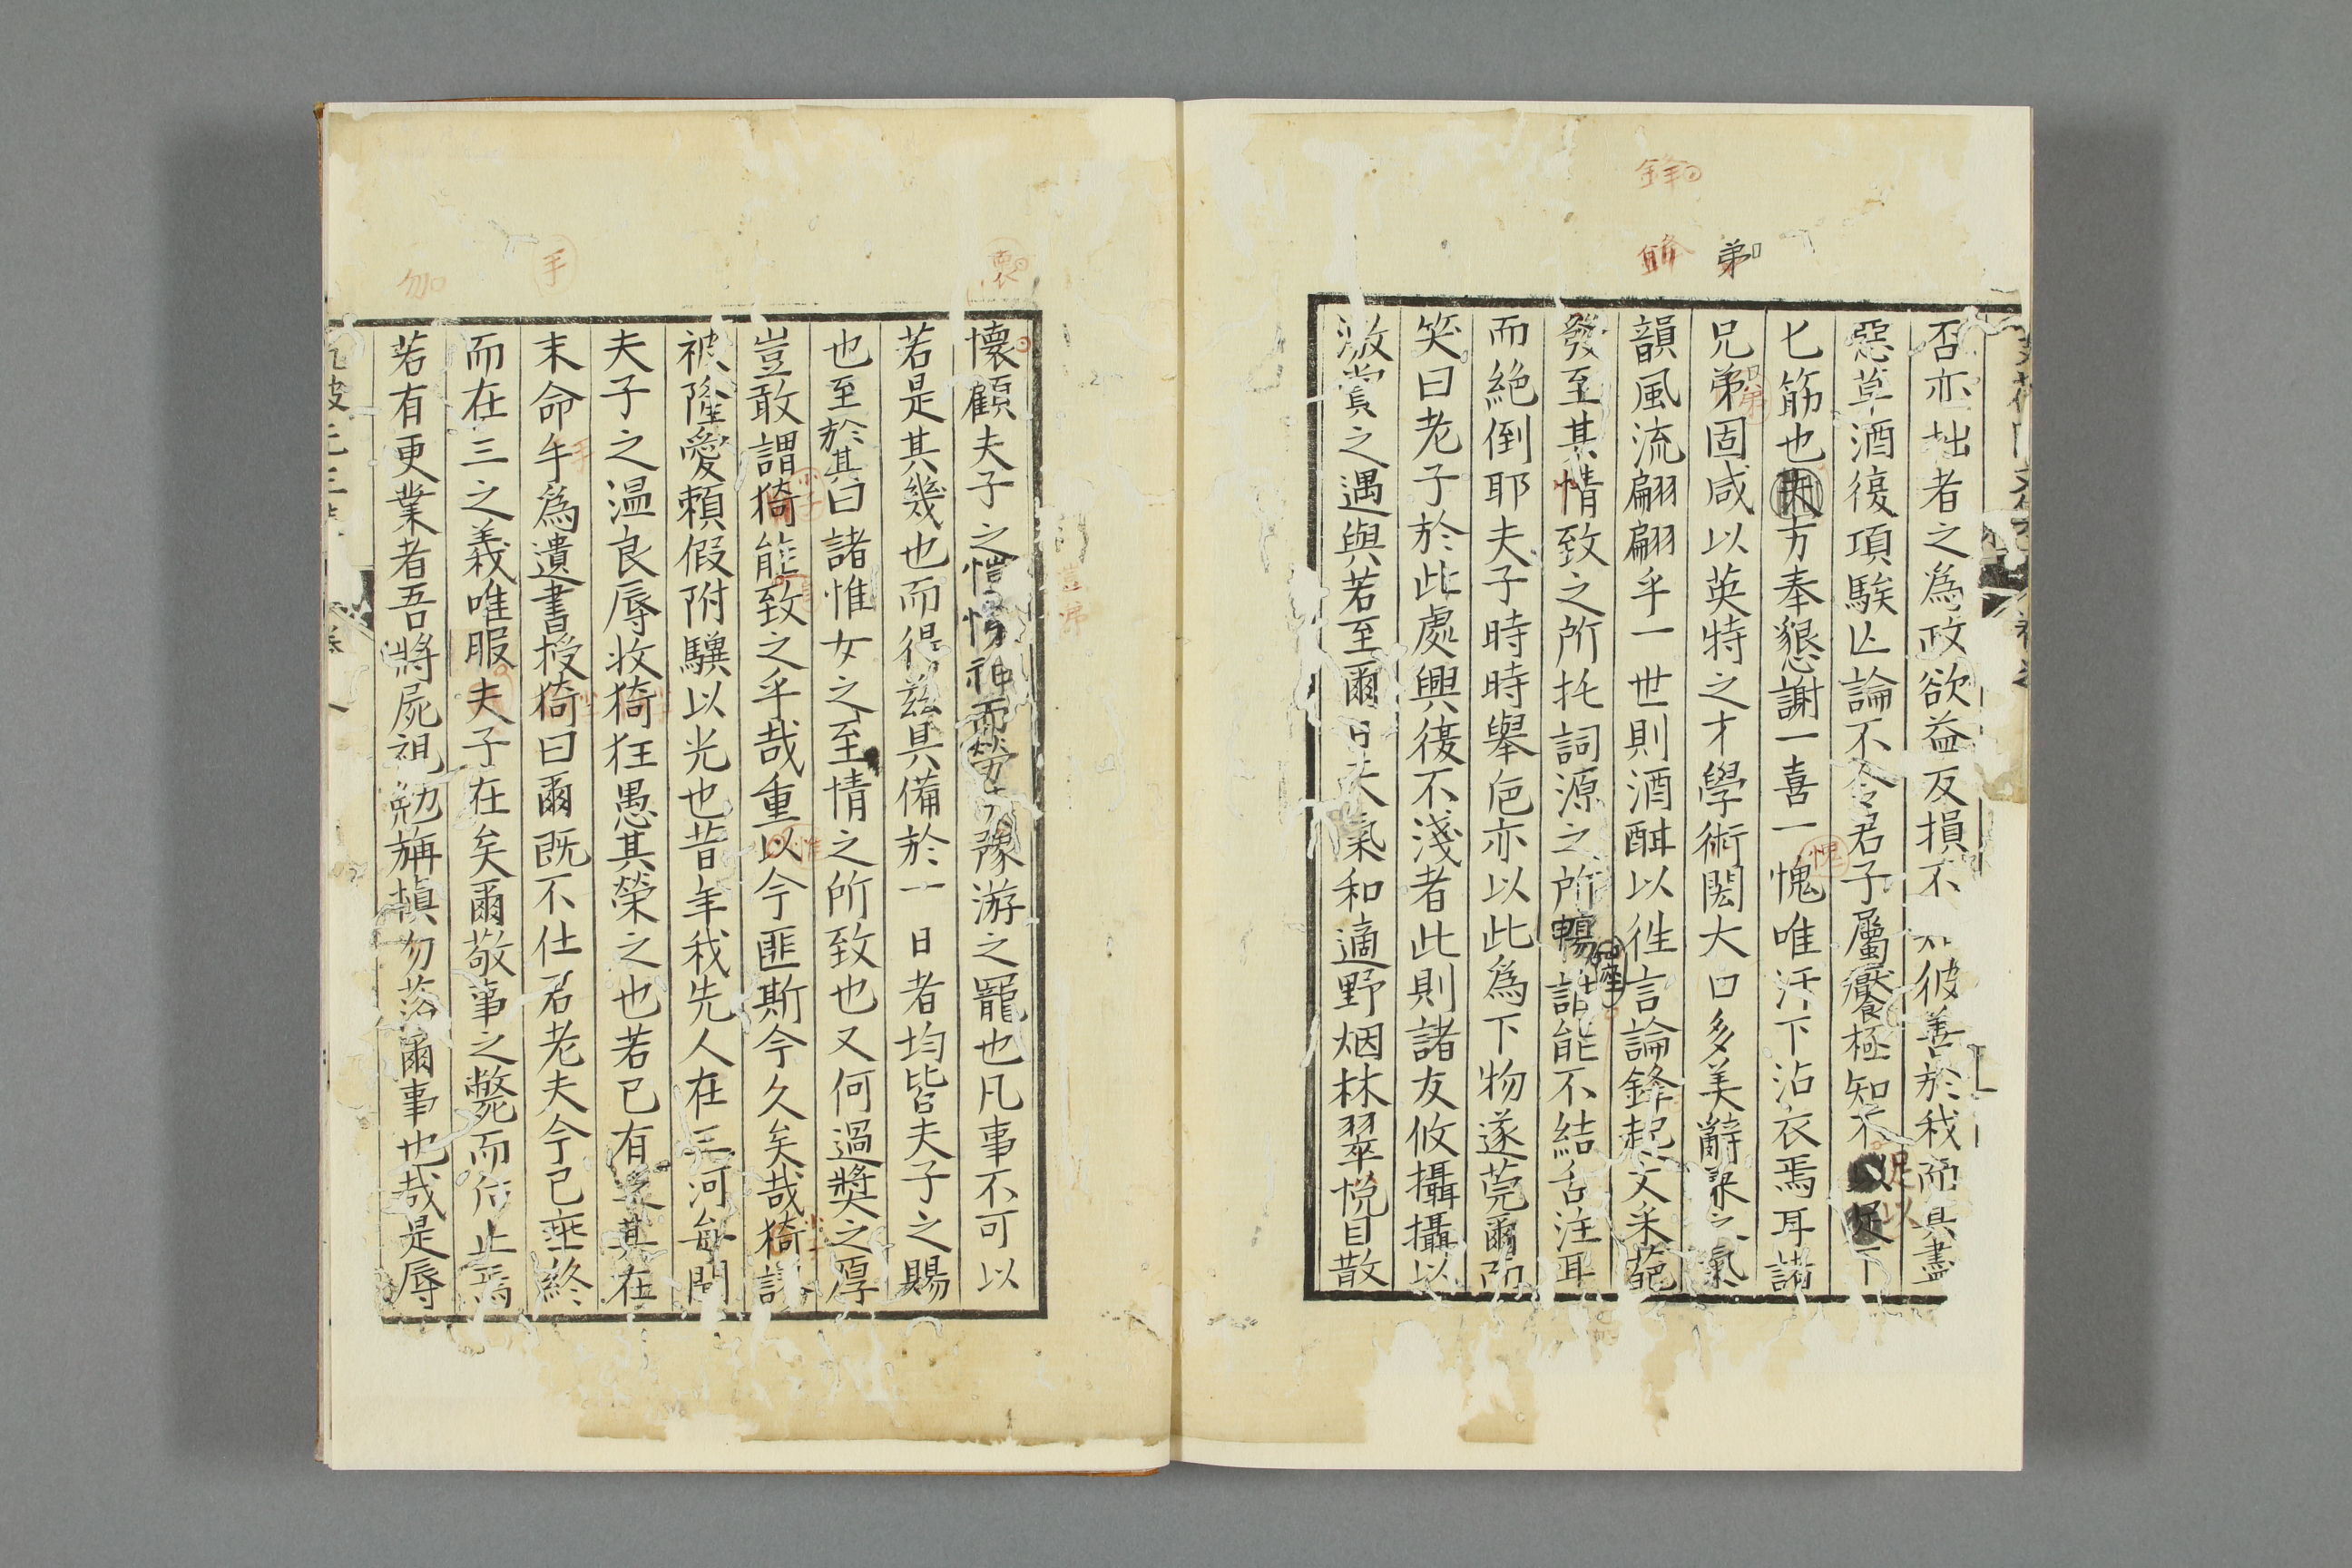 否亦拙者之爲政欲益反損不彼善於我而具盡
惡草酒復項駿亡論不令君子屬饜極知不以足下
匕筋也夫方奉懇謝一喜一愧唯汗下沾衣焉耳諸
兄弟固咸以英特之才學術閎大口多美辭染之氣
韻風流翩翩乎一世則酒酣以徃言論鋒起文采葩
發至其情致之所托詞源之所暢誰能不結舌注耳
而絶倒耶夫子時時舉巵亦以此爲下物遂莞爾而
笑曰老子於此處興復不淺者此則諸友攸攝攝以
激賞之遇與若至爾日天氣和適野烟林翠悦目散
懷顧夫子之愷悌神而勞之豫游之寵也凡事不可以
若是其幾也而得玆具備於一日者均皆夫子之賜
也至於其曰諸惟女之至情之所致也又何過奬之厚
豈敢謂猗能致之乎哉重以今匪斯今久矣哉猗謹
被隆愛頼假附驥以光也昔年我先人在三河毎聞
夫子之温良辱收猗狂愚其榮之也若已有之其在
末命手爲遺書授猗曰爾既不仕君老夫今已垂終
而在三之義唯服夫子在矣爾敬事之斃而后止焉
若有更業者吾將屍視勉旃愼勿落爾事也哉是辱
鋒
弟
懷
手